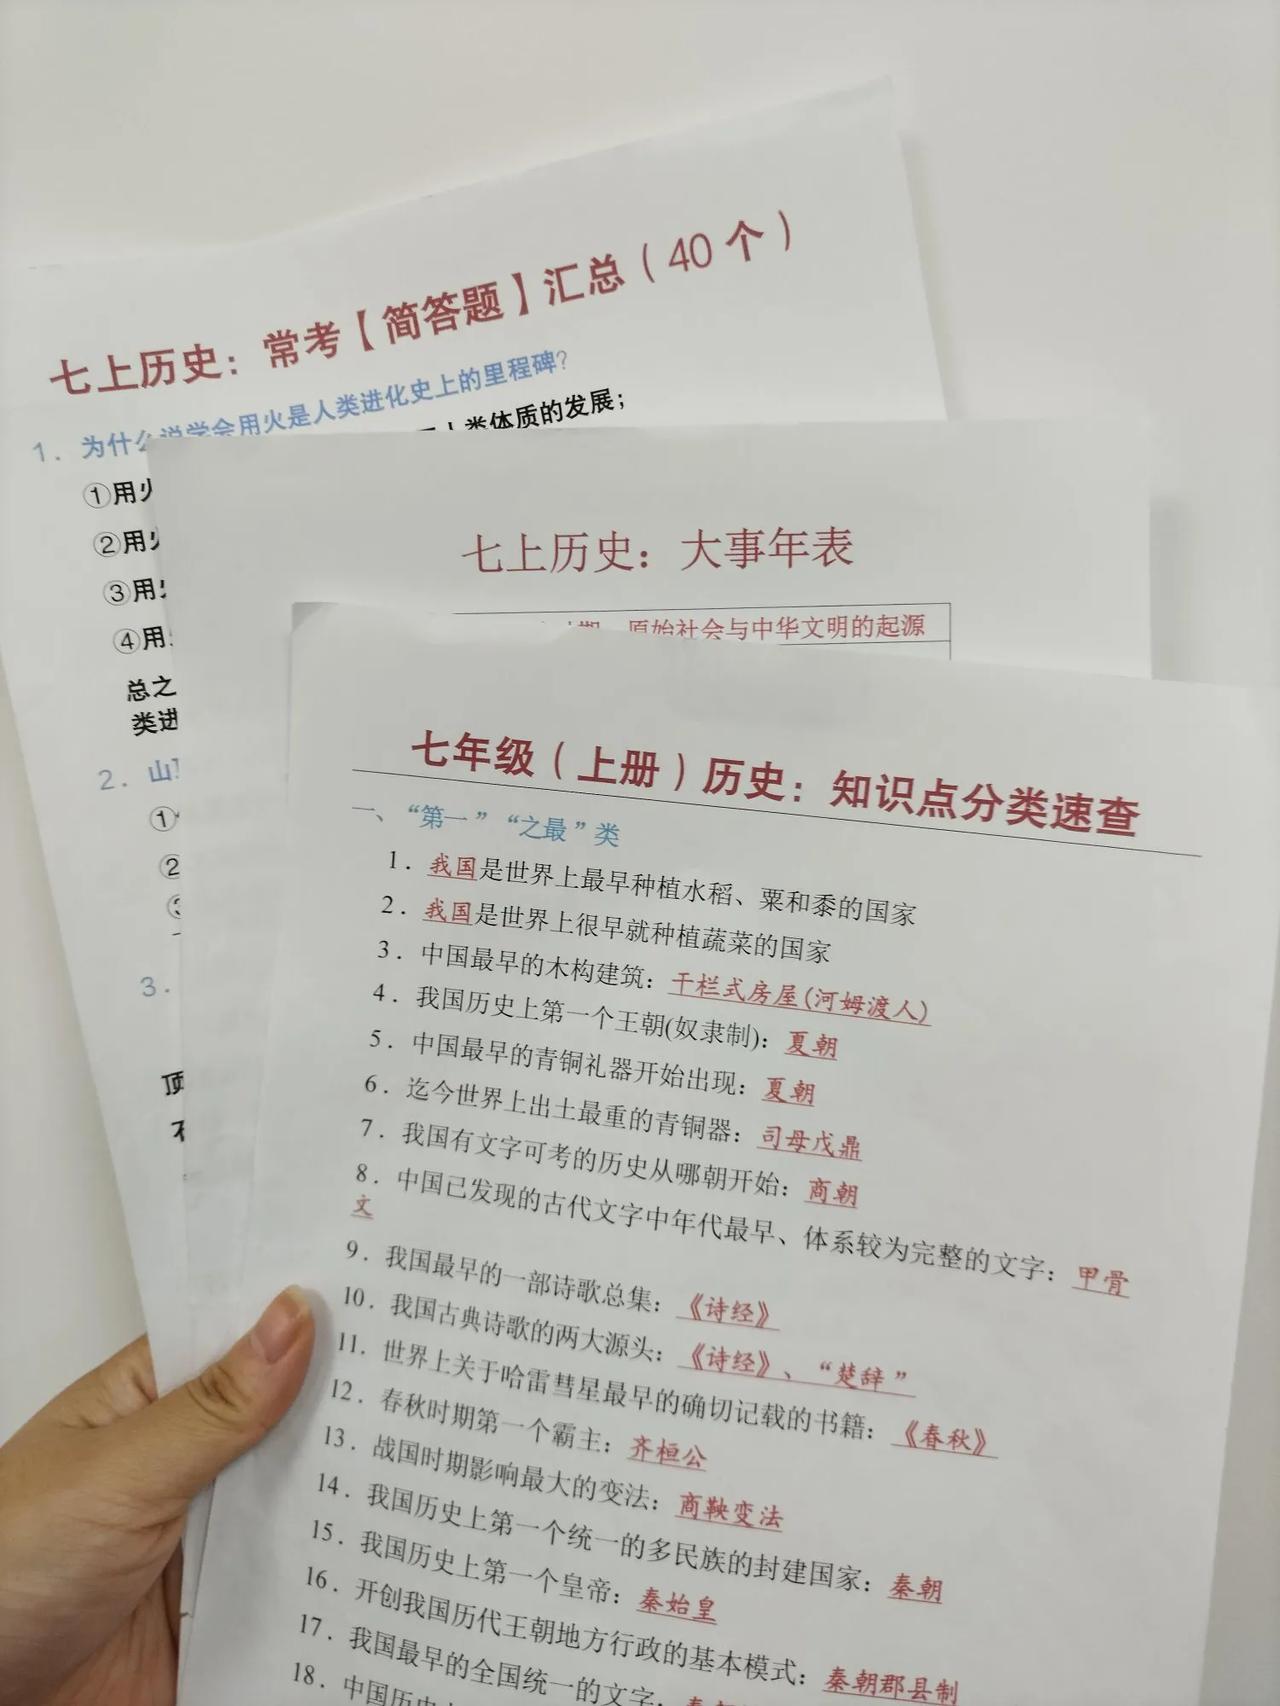 七上历史：常考【简答题】汇总（40个）
1．为什么说学会用火是人类进化史上的里程碑？
人类体质的发展；
①用火
②用火
③用
④用
总之
类进
2．山
①
②
③
3．
顶
七上历史：大事年表
原始社会与中华文明的起源
七年级（上册）历史：知识点分类速查
一、“第一”“之最”类
1．我国是世界上最早种植水稻、粟和黍的国家
2．我国是世界上很早就种植蔬菜的国家
3．中国最早的木构建筑：干栏式房屋(河姆渡人)
4．我国历史上第一个王朝(奴隶制)：夏朝
5．中国最早的青铜礼器开始出现：夏朝
6．迄今世界上出土最重的青铜器：司母戊鼎
7．我国有文字可考的历史从哪朝开始：商朝
8．中国已发现的古代文字中年代最早、体系较为完整的文字：甲骨
文
9．我国最早的一部诗歌总集：《诗经》
10．我国古典诗歌的两大源头：《诗经》、“楚辞”
11．世界上关于哈雷彗星最早的确切记载的书籍：《春秋》
12．春秋时期第一个霸主：齐桓公
13．战国时期影响最大的变法：商鞅变法
14．我国历史上第一个统一的多民族的封建国家：秦朝
15．我国历史上第一个皇帝：秦始皇
16．开创我国历代王朝地方行政的基本模式：秦朝郡县制
17．我国最早的全国统一的文字：
18．中国历史